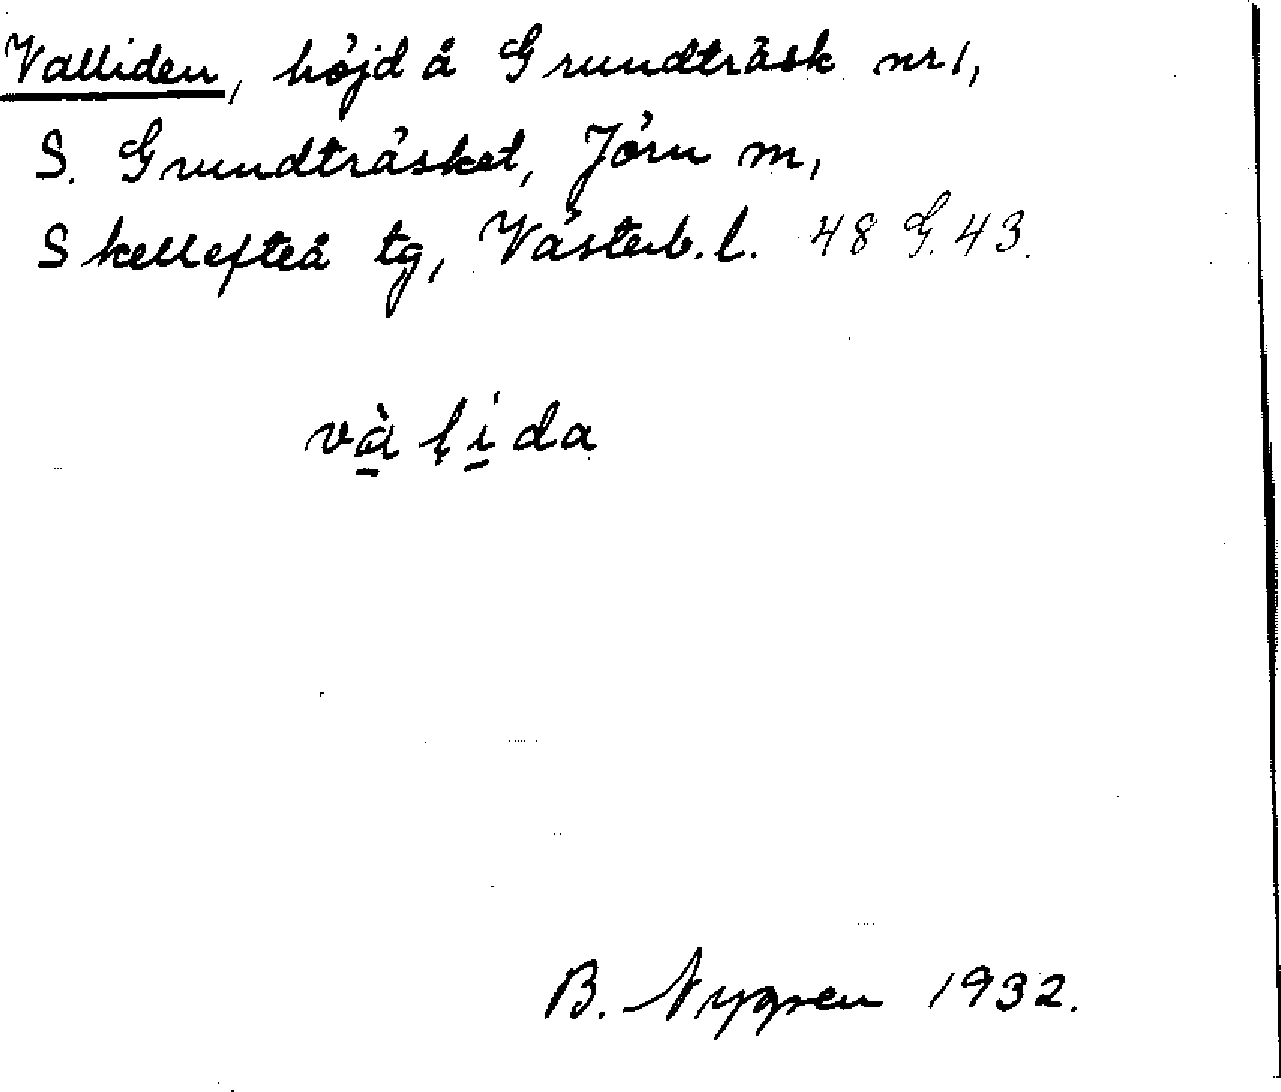 Valliden, höjd å Grundträsk nr 1,
S. Grundträsket, Jörn m,
Skellefteå tg, Västerb. l. 48 G. 43.
và̱ ḷi̱da
B. Nygren 1932.